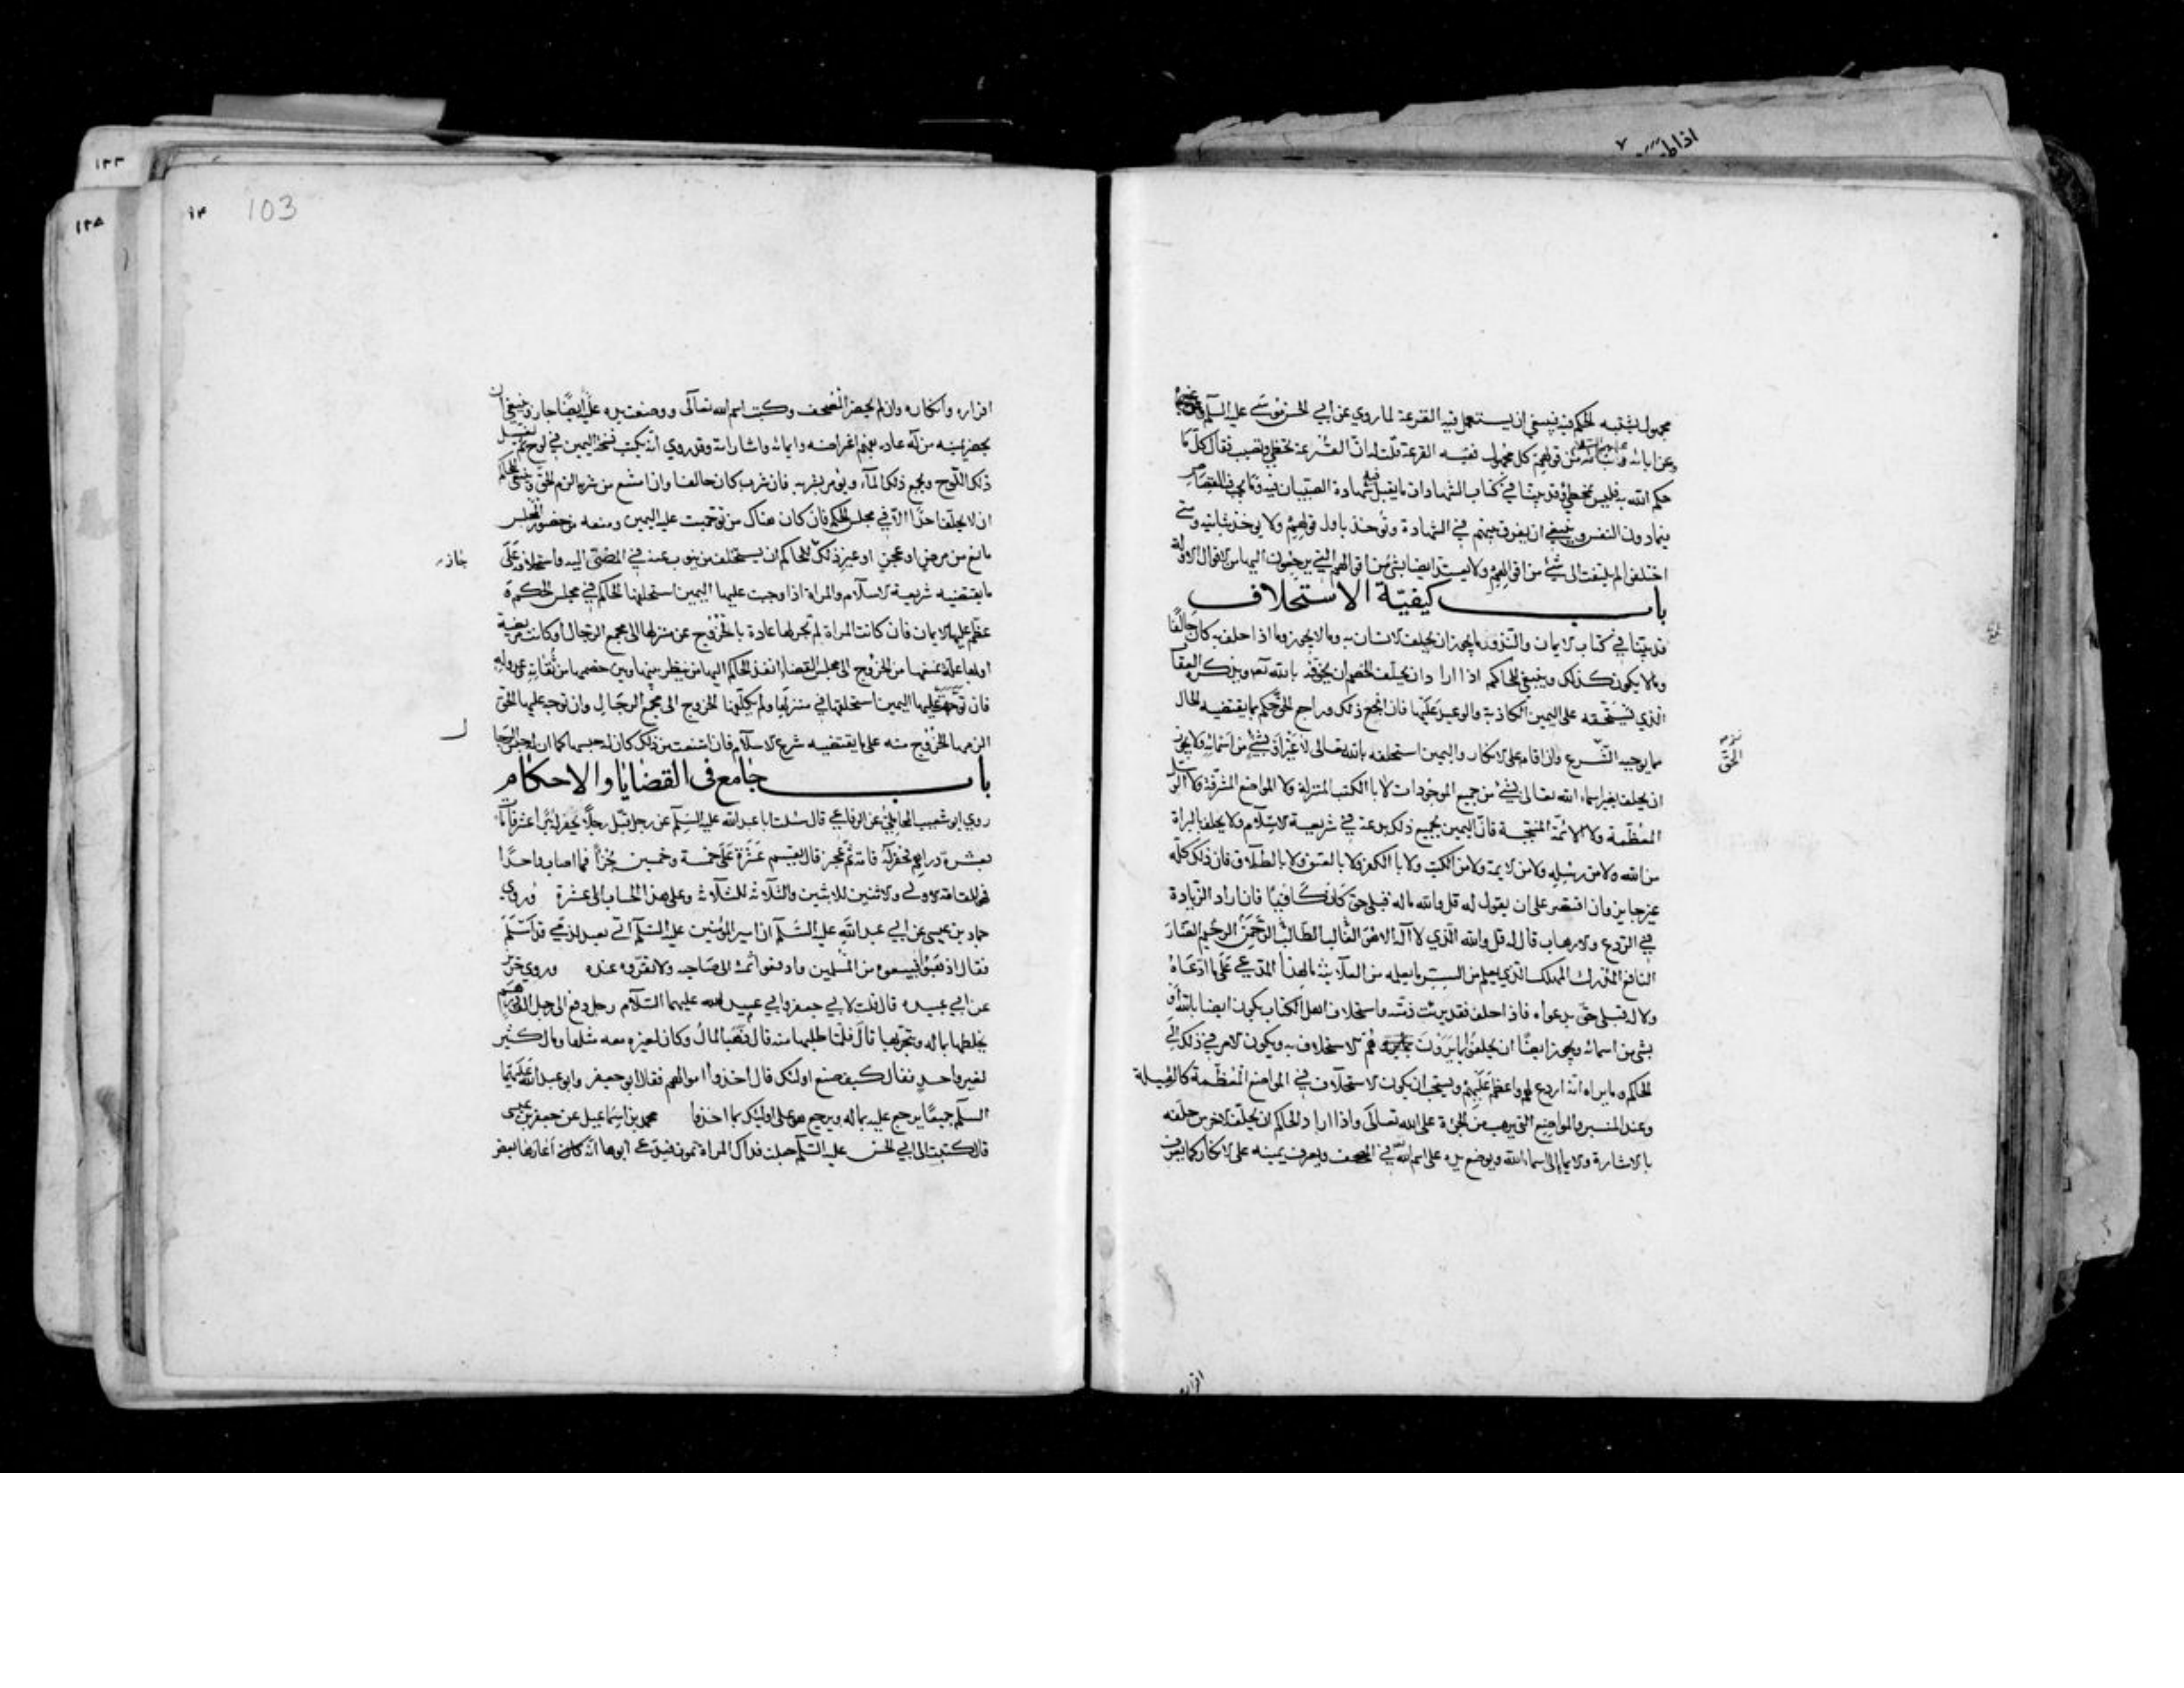 اذا
مجهول يشتبه الحكم فيه فينبغي ان يستعمل فيه القرعة لما روي عن ابي الحسن موسى عليه السلم وعن غيره
وعن ابائه وابنائه من قولهم كل مجهول ففيه القرعة قلت له ان القرعة تخطي وتصيب فقال كل ما
حكم الله به فليس بمخطئ وقد بينا في كتاب الشهادات ما يقبل فيه شهادة الصبيان فيه وما يجب في القصاص
فيما دون النفس وينبغي ان يفرق بينهم في الشهادة ويؤخذ باول قولهم ولا يوخذ بثانيه ومتى
اختلفوا لم يلتفت الى شئ من اقوالهم ولا يعتد ايضا بشئ من اقوالهم التي يرجعون اليها من الاقوال الاولة
باب كيفية الاستحلاف
قد بينا في كتاب الايمان والنذور ما يجوز ان يحلف الانسان به وما لا يجوز وما اذا حلف به كان حالفا
وما لا يكون كذلك وينبغي للحاكم اذا اراد ان يحلف الخصم ان يخوفه بالله تعه ويذكره العقاب
الذي يستحقه على اليمين الكاذبة والوعيد عليها فان انجع ذلك وراجع الحق حكم بما يقتضيه الحال
مما يوجبه الشرع وان اقام على الانكار واليمين استحلفه بالله تعالى لا غير او بشئ من اسمائه ولا يجوز
الحق
ان يحلف بغير اسماء الله تعالى بشئ من جميع الموجودات لا بالكتب المنزلة ولا المواضع المشرفة ولا الرسل
المعظمة ولا الائمة المنتجبة فان اليمين بجميع ذلك بدعة في شريعة الاسلام ولا يحلف بالبراة
من الله ولا من رسله ولا من الايمة ولا من الكتب ولا بالكفر ولا بالعتق ولا بالطلاق فان ذلك كله
غير جايز وان اقتصر على ان يقول له قل والله ما له قبلي حق كان كافيا فان اراد الزيادة
في الردع والارهاب قال له قل والله الذي لا اله الا هو الغالب الطالب الرحمن الرحيم الضار
النافع المدرك المهلك الذي يعلم من السر ما يعلمه من العلانية ما لهذا المدعي علي ما ادعاه
ولا له قبلي حق بدعواه فاذا حلف فقد برئت ذمته واستحلاف اهل الكتاب يكون ايضا بالله او
بشئ من اسمائه ويجوز ايضا ان يحلفوا بما يرون هم الاستحلاف به ويكون الامر في ذلك الى
الحاكم وما يراه انه اردع لهم واعظم عليهم ويستحب ان يكون الاستحلاف في المواضع المعظمة كالقبلة
وعند المنبر والمواضع التي يرهب من الجرءة على الله تعالى واذا اراد الحاكم ان يحلف الاخرس حلفه
بالاشارة والايما الى اسماء الله ويوضع يده على اسم الله في المصحف ويعرف يمينه على الانكار كما يعرف
اقراره
103
اقراره وانكاره وان لم يحضر المصحف وكتب اسم الله تعالى ووضعت يده عليه ايضا جاز وينبغي ان
يحضر يمينه من له عادة بفهم اغراضه وايمائه واشاراته وقد روي انه يكتب نسخة اليمين في لوح ثم يغسل
ذلك اللوح ويجمع ذلك الماء ويؤمر بشربه فان شرب كان حالفا وان امتنع من شربه الزم الحق وينبغي للحاكم
ان لا يحلف احدا الا في مجلس الحكم فان كان هناك من توجهت عليه اليمين ومنعه من حضور المجلس
مانع من مرض او عجز او غير ذلك جاز للحاكم ان يستخلف من ينوب عنه في المضي اليه واستحلافه على
ما يقتضيه شريعة الاسلام والمراة اذا وجبت عليها اليمين استحلفها الحاكم في مجلس الحكم و
عظم عليها الايمان فان كانت المراة لم تجر لها عادة بالخروج عن منزلها الى مجمع الرجال او كانت مريضة
او لها علة تمنعها من الخروج الى مجلس القضاء انفذ الحاكم اليها من ينظر بينها وبين خصمها من ثقاته وعدوله
فان توجهت عليها اليمين استحلفها في منزلها ولم يكلفها الخروج الى مجمع الرجال وان توجه عليها الحق
الزمها الخروج منه على ما يقتضيه شرع الاسلام فان امتنعت من ذلك كان له حبسها كما ان له حبس الرجا
ل
باب جامع في القضايا والاحكام
روي ابو شعيب المحاملي عن الرفاعي قال سئلت ابا عبد الله عليه السلم عن رجل قبل رجلا يحفر له بئرا عشر قامات
بعشرة دراهم فحفر له قامة ثم عجز قال يقسم عشرة على خمسة وخمسين جزءا فما اصاب واحدا
فهو للقامة الاولى والاثنين للاثنين والثلاثة للثلاثة وعلى هذا الحساب الى عشرة وروي
حماد بن عيسى عن ابي عبد الله عليه السلم ان امير المؤمنين عليه السلم اتي بعبد لذمي قد اسلم
فقال اذهبوا فبيعوه من المسلمين وادفعوا ثمنه الى صاحبه ولا تقروه عنده وروي حريز
عن ابي عبيده قال قلت لابي جعفر وابي عبد الله عليهما السلام رجل دفع الى رجل الف درهم
يخلطها بماله ويتجر بها قال فلما طلبها منه قال ذهب المال وكان لغيره معه مثلها ومال كثير
لغير واحد فقال كيف صنع اولئك قال اخذوا اموالهم فقال ابو جعفر وابو عبد الله عليهما
السلم جميعا يرجع عليه بماله ويرجع هو على اولئك بما اخذوا محمد بن اسماعيل عن جعفر بن عيسى
قال كتبت الى ابي الحسن عليه السلم جعلت فداك المراة تموت فيدعي ابوها انه كان اعارها بعض